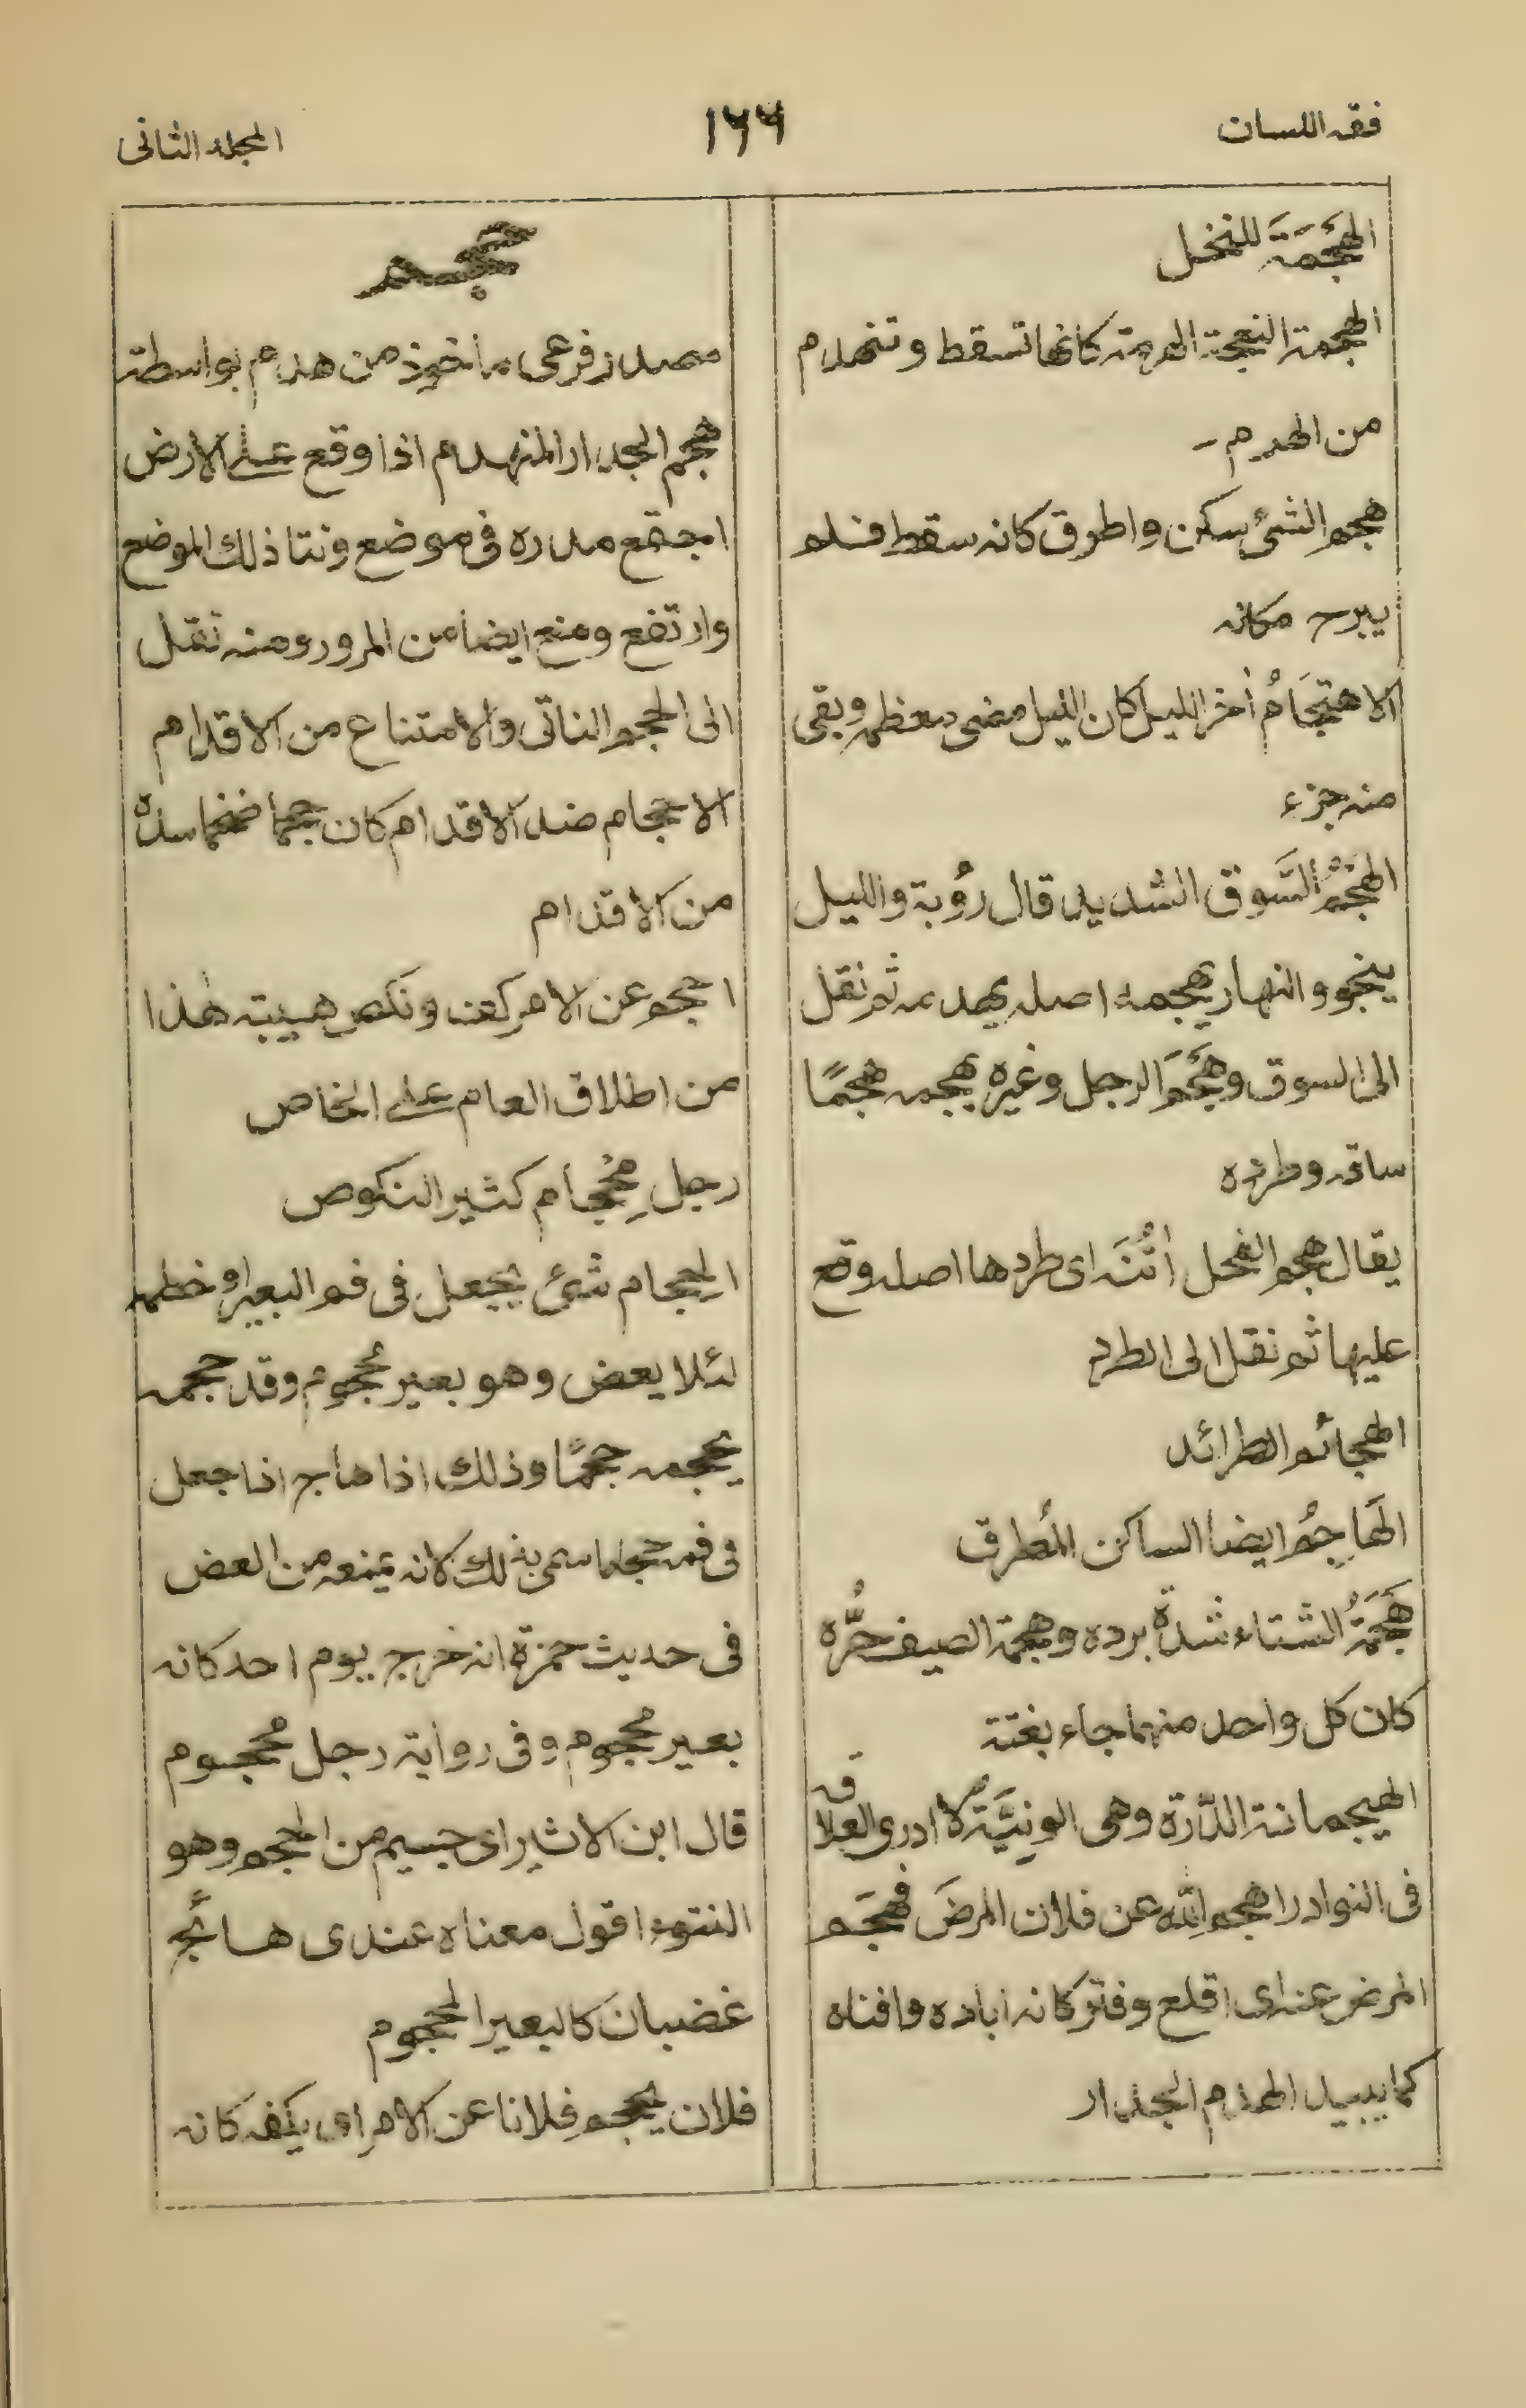 فقه اللسان
١٦٦
المجلد الثانى
الهَجَمَةَ للنخل
الهجمة النعجة الهرمة كانها تسقط وتنهدام
من الهدم -
هجم الشئ سكن واطرق كانه سقط فلم
يبرح مكانه
الاهتِجَامُ أخر الليل كان الليل مضى معظمه وبقى
منه جزء
الهَجْمُ السَّوق الشديد قال رؤبة والليل
ينجو والنهار يهجمه اصله يهدمه ثم نقل
الى السوق وهَجَمَ الرجل وغيره يهجمه هجمًا
ساقه وطرده
يقال هجم الفحل أتُنَه اى طردها اصله وقع
عليها ثم نقل الى الطرد
الهجائم الطرائد
الهَاجِمُ ايضا الساكن المُطرق
هَجَمَةُ الشتاء شدة برده وهجمة الصيف حُرَّه
كان كل واحد منهما جاء بغتة
الهيجمانة الدّرة وهى الونِيَّة لا ادرى العلاقة
فى النوادر اهجم الله عن فلان المرضَ فهَجَم
المرض عنه اى اقلع وفتر كانه اباده وافناه
كما يبيد الهدم الجدار
حجم
مصدر فرعى ماخوذ من هدم بواسطة
هجم الجدار المنهدم اذا وقع على الارض
اجتمع مدره فى موضع ونتا ذلك الموضع
وارتفع ومنع ايضا من المرور ومنه نقل
الى الحجم الناتى والامتناع من الاقدام
الاحجام ضد الاقدام كان حجما ضخما سدّه
من الاقدام
احجم عن الامر كف ونكص هيبته هذا
من اطلاق العام على الخاص
رجل مِحْجام كثير النكوص
الحِجام شئ يجعل فى فم البعير او خطمه
لئلا يعض وهو بعير محجوم وقد حجمه
يحجمه حجمًا وذلك اذا هاج اذا جعل
فى فمه حجاما سمى بذلك كانه يمنعه من العض
فى حديث حمزة انه خرج يوم احد كانه
بعير محجوم وفى رواية رجل محجوم
قال ابن الاثير اى جسيم من الحجم وهو
النتوء اقول معناه عندى هائج
غضبان كالبعير المحجوم
فلان يحجم فلانا عن الامر اى يكفه كانه